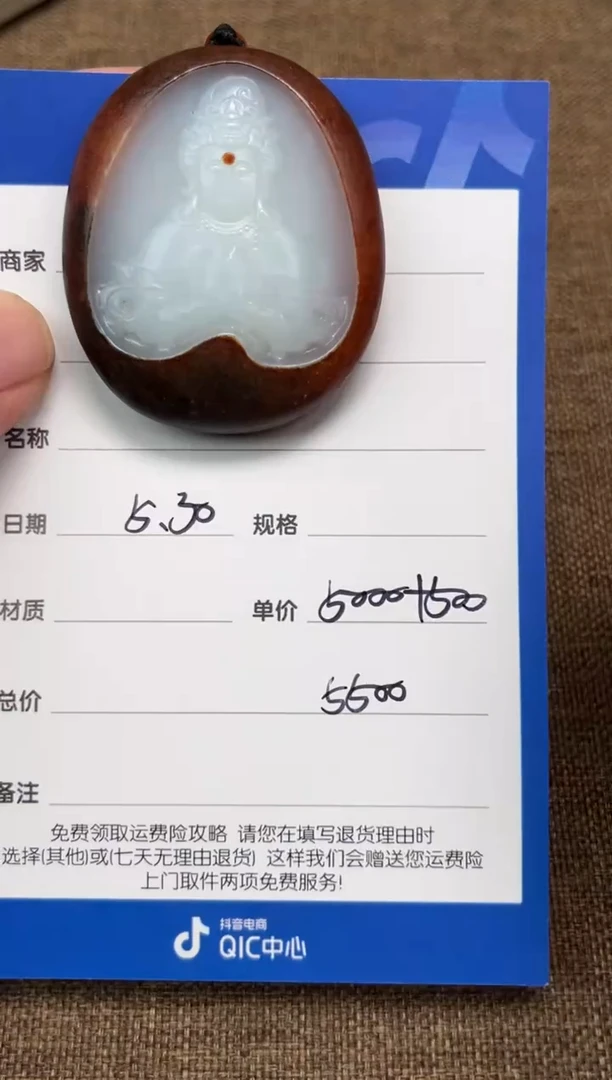 商家
名称
日期 5.30 规格
材质 单价 5000+500
总价 5500
备注
免费领取运费险攻略 请您在填写退货理由时
选择(其他)或(七天无理由退货) 这样我们会赠送您运费险
上门取件两项免费服务!
抖音电商
QIC中心